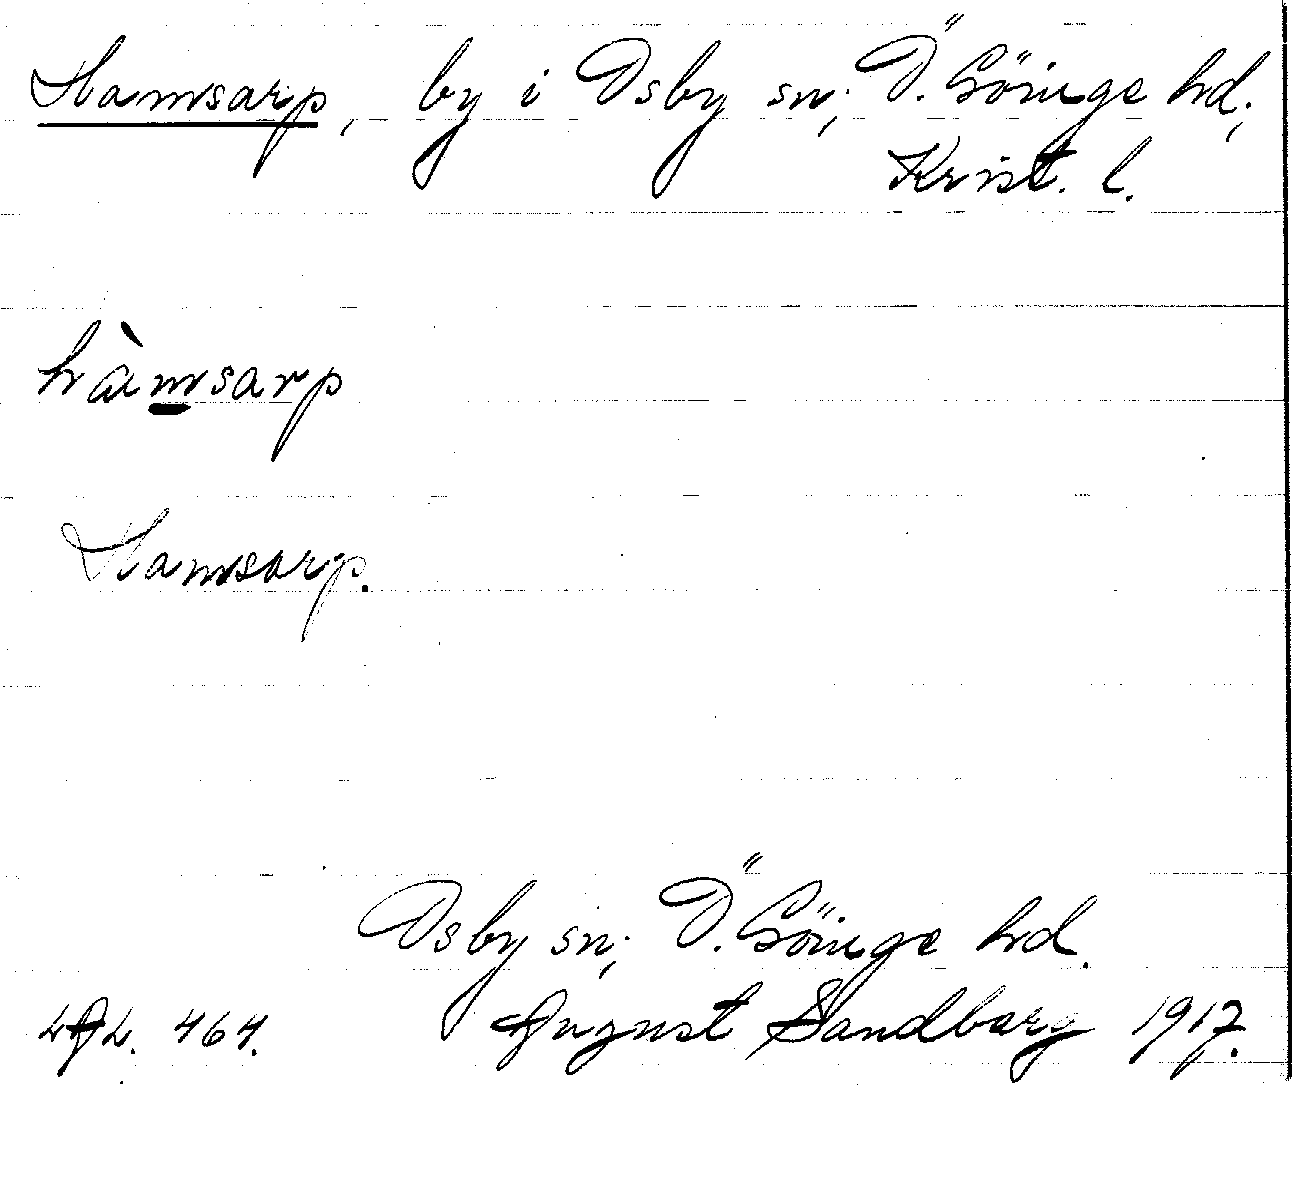 Hamsarp, by i Osby sn; Ö. Göinge hd;
Krist. l.
hàmsarp
Hamsarp.
Osby sn; Ö. Göinge hd.
LAL. 464. August Sandberg 1917.